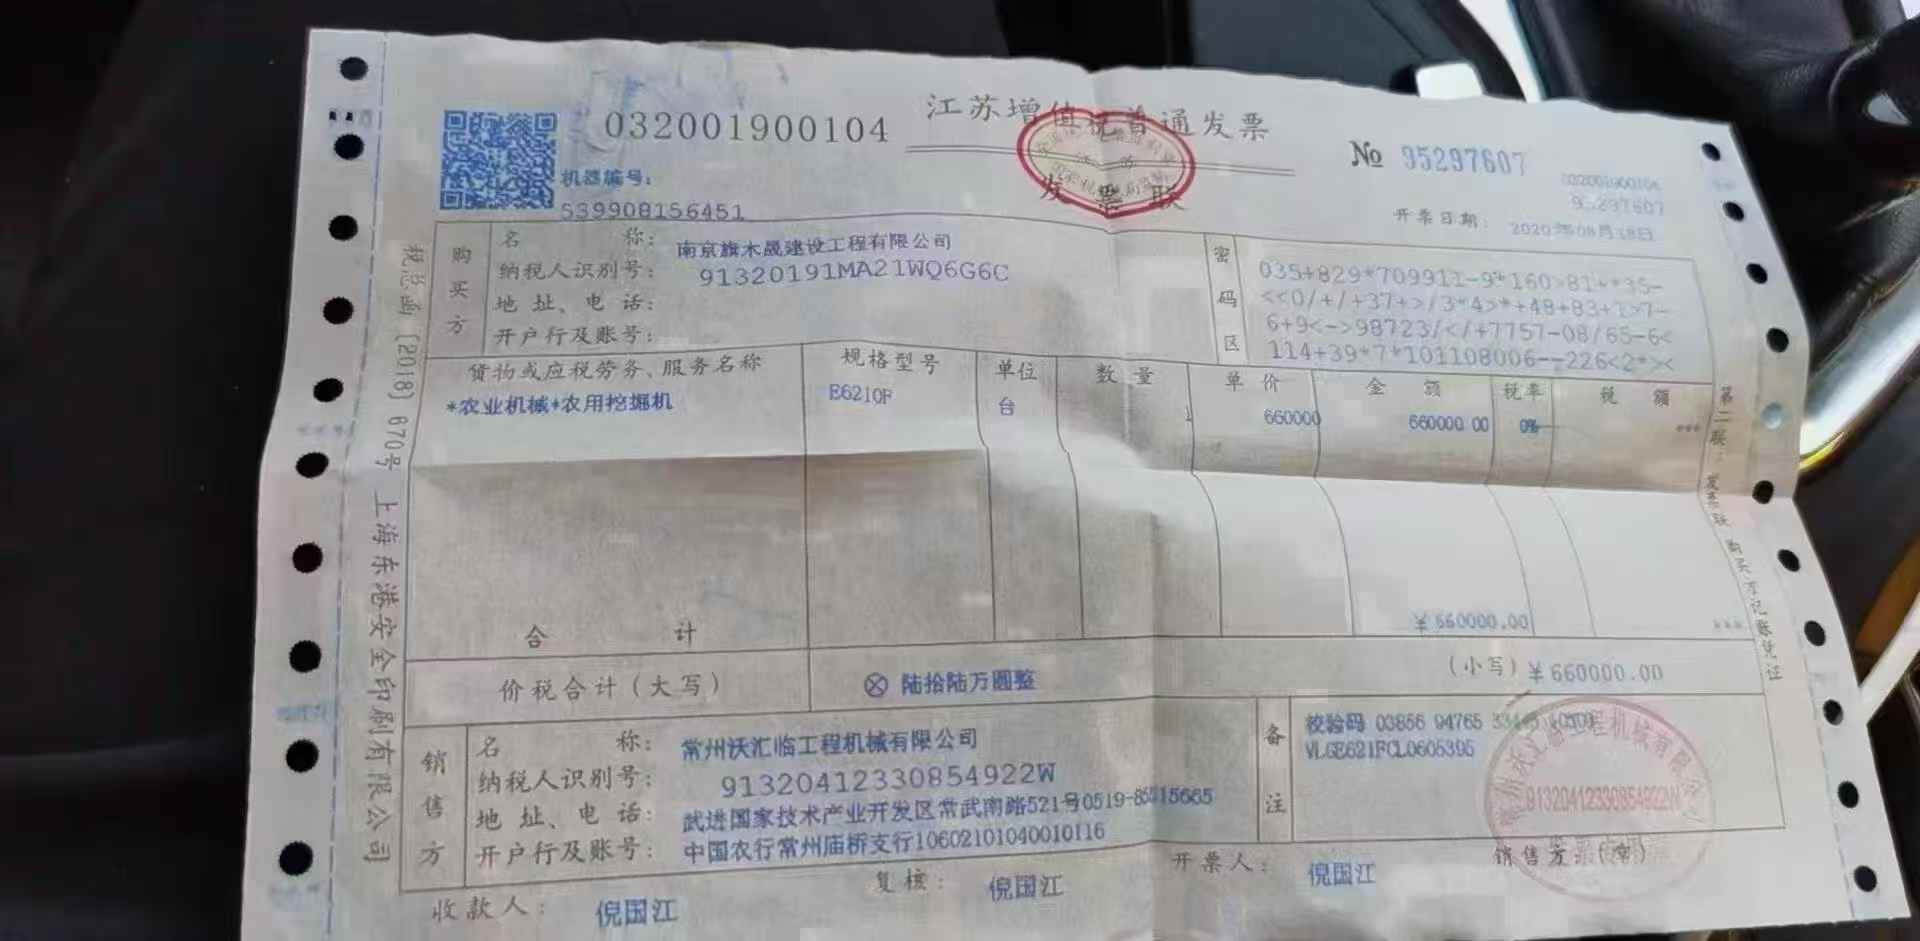 032001900104
江苏增值税普通发票
发票联
No 95297607
032001900104
95297607
机器编号:
539908156451
开票日期: 2020年08月18日
购买方
名 称: 南京旗木晟建设工程有限公司
纳税人识别号: 91320191MA21WQ6G6C
地 址、电 话:
开户行及账号:
密码区
035+829*709911-9*160>81+*35-
<<0/+/+37+>/3*4>*+48+83+1>7-
6+9<->98723/</+7757-08/65-6<
114+39*7*101108006--226<2*><
货物或应税劳务、服务名称 规格型号 单位 数 量 单 价 金 额 税率 税 额
*农业机械*农用挖掘机 E6210F 台 1 660000 660000.00 0% ***
合 计 ¥660000.00 ***
价税合计(大写) ⊗ 陆拾陆万圆整 (小写) ¥660000.00
销售方
名 称: 常州沃汇临工程机械有限公司
纳税人识别号: 91320412330854922W
地 址、电 话: 武进国家技术产业开发区常武南路521号0519-85515665
开户行及账号: 中国农行常州庙桥支行10602101040010116
备注
校验码 03856 94765
VLGE621FCL0605395
91320412330854922W
收款人: 倪国江 复核: 倪国江 开票人: 倪国江 销售发票(章)
税总函[2018]670号 上海东港安全印刷有限公司
第二联:发票联 购买方记账凭证